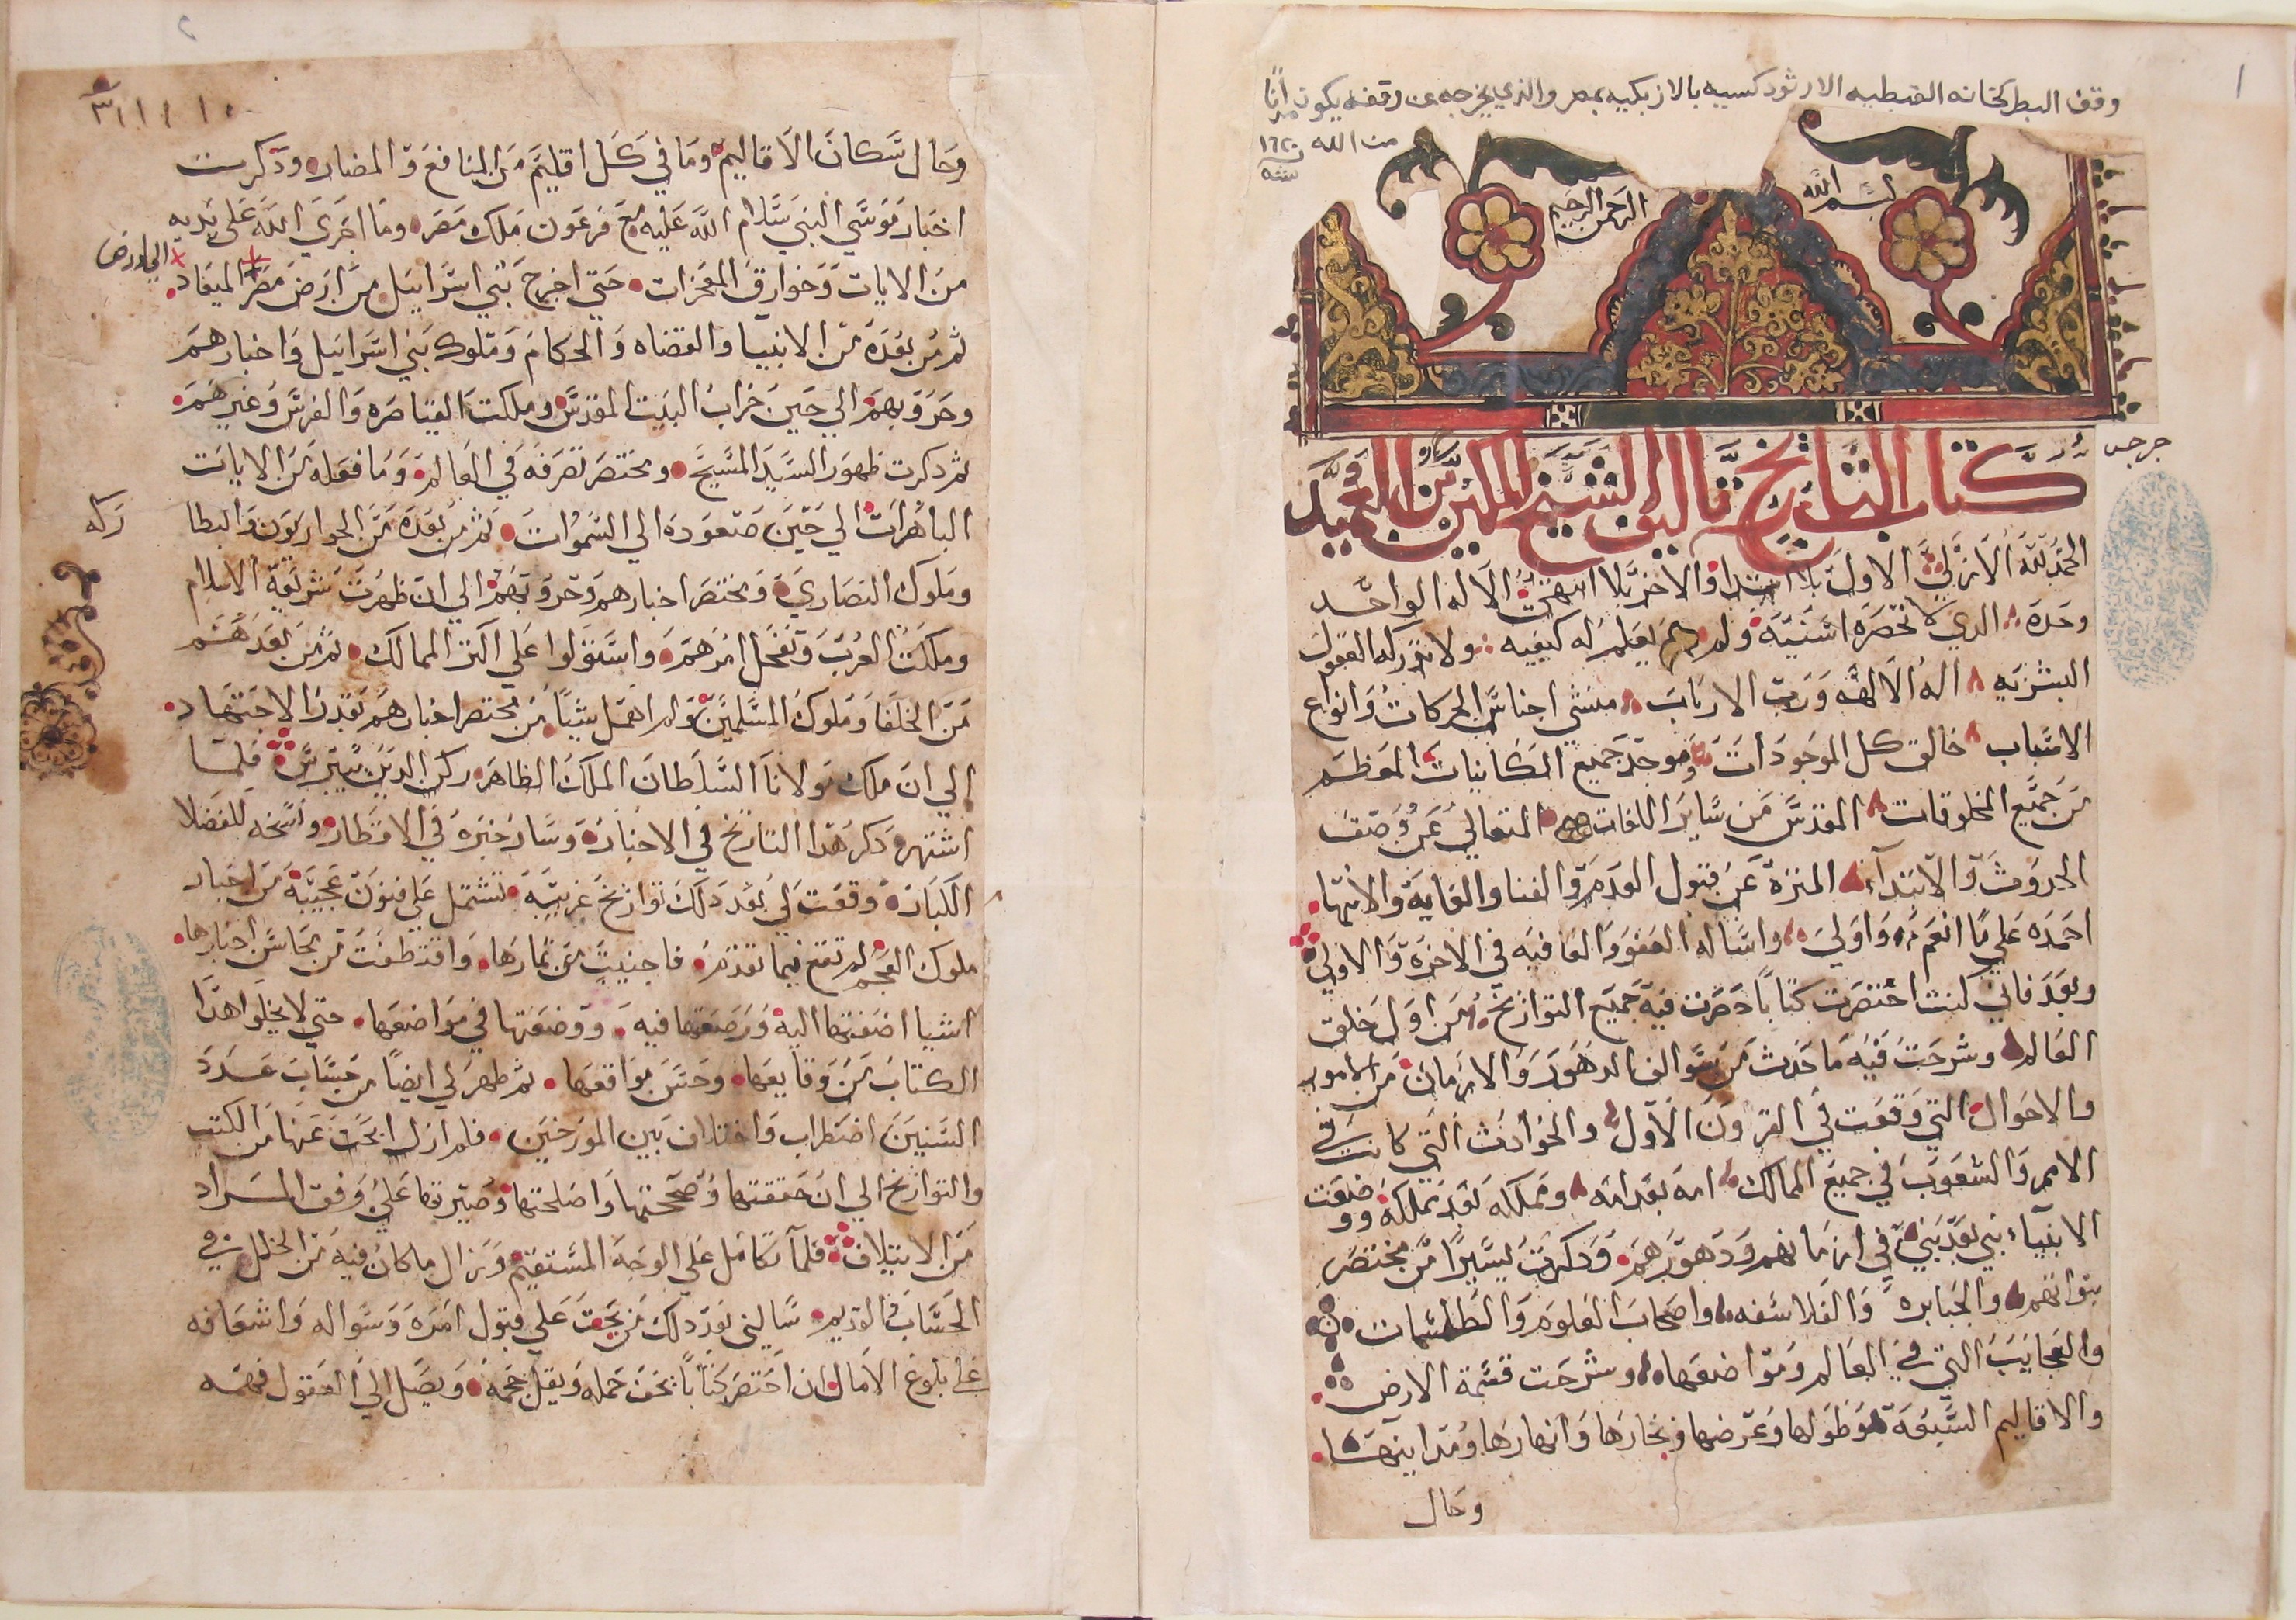 ١
وقف البطركخانه القبطيه الارثودكسيه بالازبكيه بمصر والذي يخرجه عن وقفه يكون مدانًا
من الله سنة ١٦٢٠
بسم الله
الرحمن الرحيم
كتاب التاريخ تاليف الشيخ المكين ابن العميد
جرجس
الحمد لله الازلي الاول بلا ابتدا والاخر بلا انتها الاله الواحد
وحده الدي لا تحصره اسنيه ولم يعلم له كيفيه ولا تدركه العقول
البشريه اله الالهه ورب الارباب منشي اجناس الحركات وانواع
الاسباب خالق كل الموجودات وموجد جميع الكاينات المعظم
من جميع المخلوقات المقدس من ساير اللغات المتعالي عن وصف
الحدوث والابتدآء المنزه عن قبول العدم والفنا والغايه والانتها
احمده علي ما انعم واولي واساله العفو والعافيه في الاخره والاولي
وبعد فاني كنت اختصرت كتابًا حصرت فيه جميع التواريخ من اول خلق
العالم وشرحت فيه ما حدث من سوالف الدهور والازمان من الامور
والاحوال التي وقعت في القرون الاول والحوادث التي كانت في
الامم والشعوب في جميع الممالك امه بعد امه ومملكه بعد مملكه ووضعت
الانبيآء نبي بعد نبي في ازمانهم ودهورهم ودكرت يسيرًا من مختصر
نبواتهم والجبابره والفلاسفه واصحاب العلوم والطلسمات
والعجايب التي في العالم ومواضعها وشرحت قسمة الارض
والاقاليم السبعه وطولها وعرضها وبحارها وانهارها ومداينها
وحال
٢
وحال سكان الاقاليم وما في كل اقليم من المنافع والمضار ودكرت
اخبار موسي النبي سلام الله عليه مع فرعون ملك مصر وما اجري الله علي يديه
من الايات وخوارق المعجزات حتي اخرج بني اسراييل من ارض مصر الميعاد
الي ارض
ثم من بعده من الانبيا والقضاه والحكام وملوك بني اسراييل واخبارهم
وحروبهم الي حين خراب البيت المقدس وملكت القياصره والفرس وغيرهم
ثم دكرت ظهور السيد المسيح ومختصر تصرفه في العالم وما فعله من الايات
الباهرات الي حين صعوده الي السموات ثم من بعده من الحواريون والبطا
ركه
وملوك النصاري ومختصر اخبارهم وحروبهم الي ان ظهرت شريعة الاسلام
وملكت العرب وتفحل امرهم واستولوا علي اكتر الممالك ثم من بعدهم
من الخلفا وملوك المسلمين ولم اهمل شيًا من مختصر اخبارهم بقدر الاجتهاد
الي ان ملك مولانا السلطان الملك الظاهر ركن الدين بيبرس فلما
اشتهر دكر هدا التاريخ في الاخبار وسار خبره في الاقطار ونسخه للفضلا
الكبار وقعت لي بعد دلك تواريخ غريبه تشتمل علي فنون عجيبه من اخبار
ملوك العجم لم تقع فيما تقدم فاجنيت من ثمارها واقتطفت من محاسن اخبارها
اشيا اضفتها اليه ورصعتها فيه ووضعتها في مواضعها حتي لا يخلوا هدا
الكتاب من وقايعها وحسن مواقعها ثم ظهر لي ايضًا من حساب عدد
السنين اضطراب واختلاف بين المورخين فلم ازل ابحث عنها من الكتب
والتواريخ الي ان حققتها وصححتها واصلحتها وصيرتها علي وفق المراد
من الايتلاف فلما تكامل علي الوجه المستقيم وزال ما كان فيه من الخلل في
الحساب القديم سالني بعد دلك من يجب علي قبول امره وسواله واسعافه
علي بلوغ الامال ان اختصر كتابًا يخف حمله ويقل حجمه ويصل الي العقول فهمه